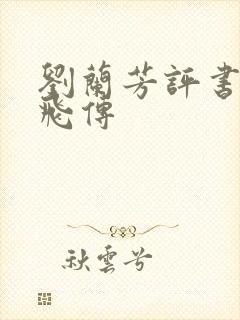 劉蘭芳評書
飛傳
秋雲兮